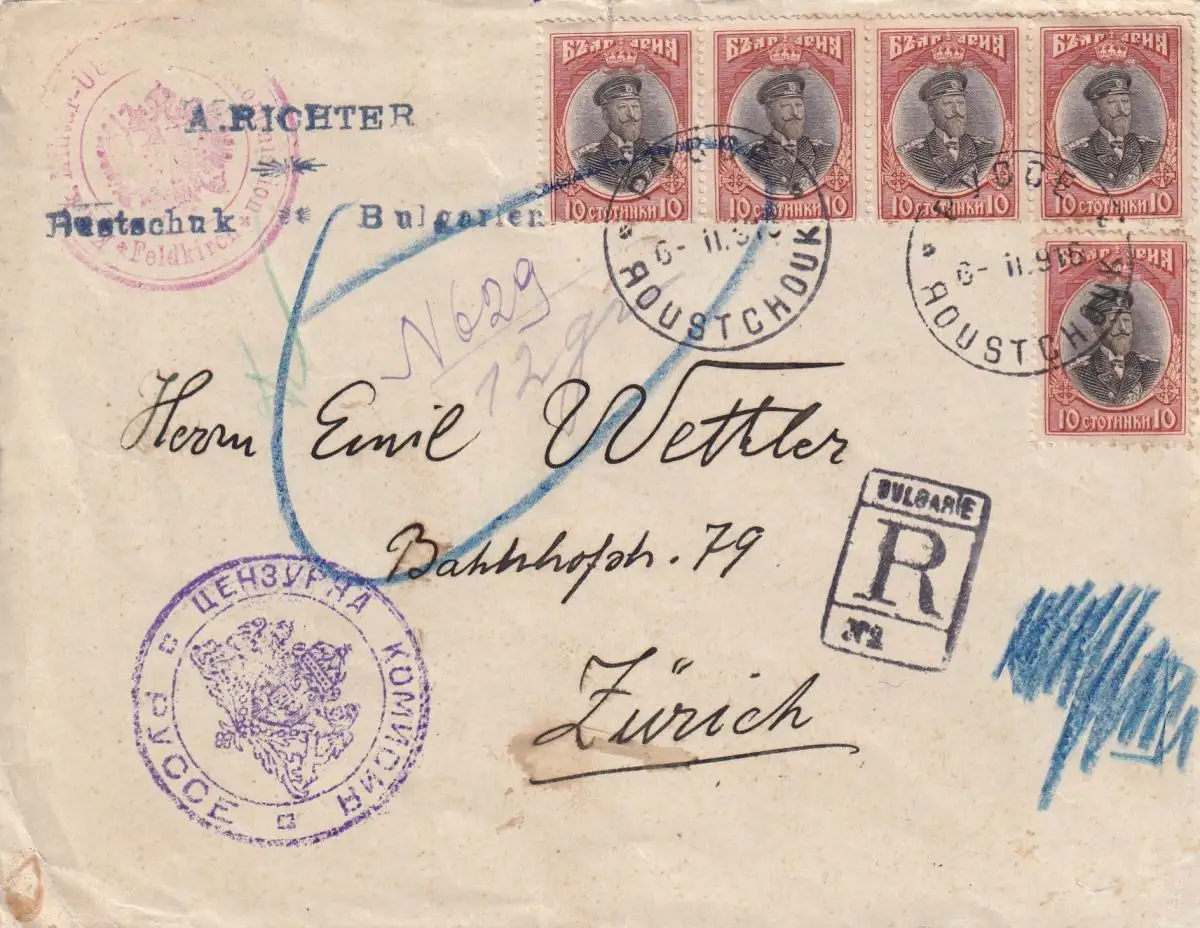 A.RICHTER
Rustschuk ** Bulgarien
Feldkirch
БЪЛГАРИЯ
10 СТОТИНКИ 10
БЪЛГАРИЯ
10 СТОТИНКИ 10
БЪЛГАРИЯ
10 СТОТИНКИ 10
БЪЛГАРИЯ
10 СТОТИНКИ 10
БЪЛГАРИЯ
10 СТОТИНКИ 10
6-II.916
ROUSTCHOUK
6-II.916
ROUSTCHOUK
N 629
12 gr
Herrn Emil Wettler
Bahnhofstr. 79
Zürich
BULGARIE
R
№
ЦЕНЗУРНА КОМИСИЯ
РУССЕ